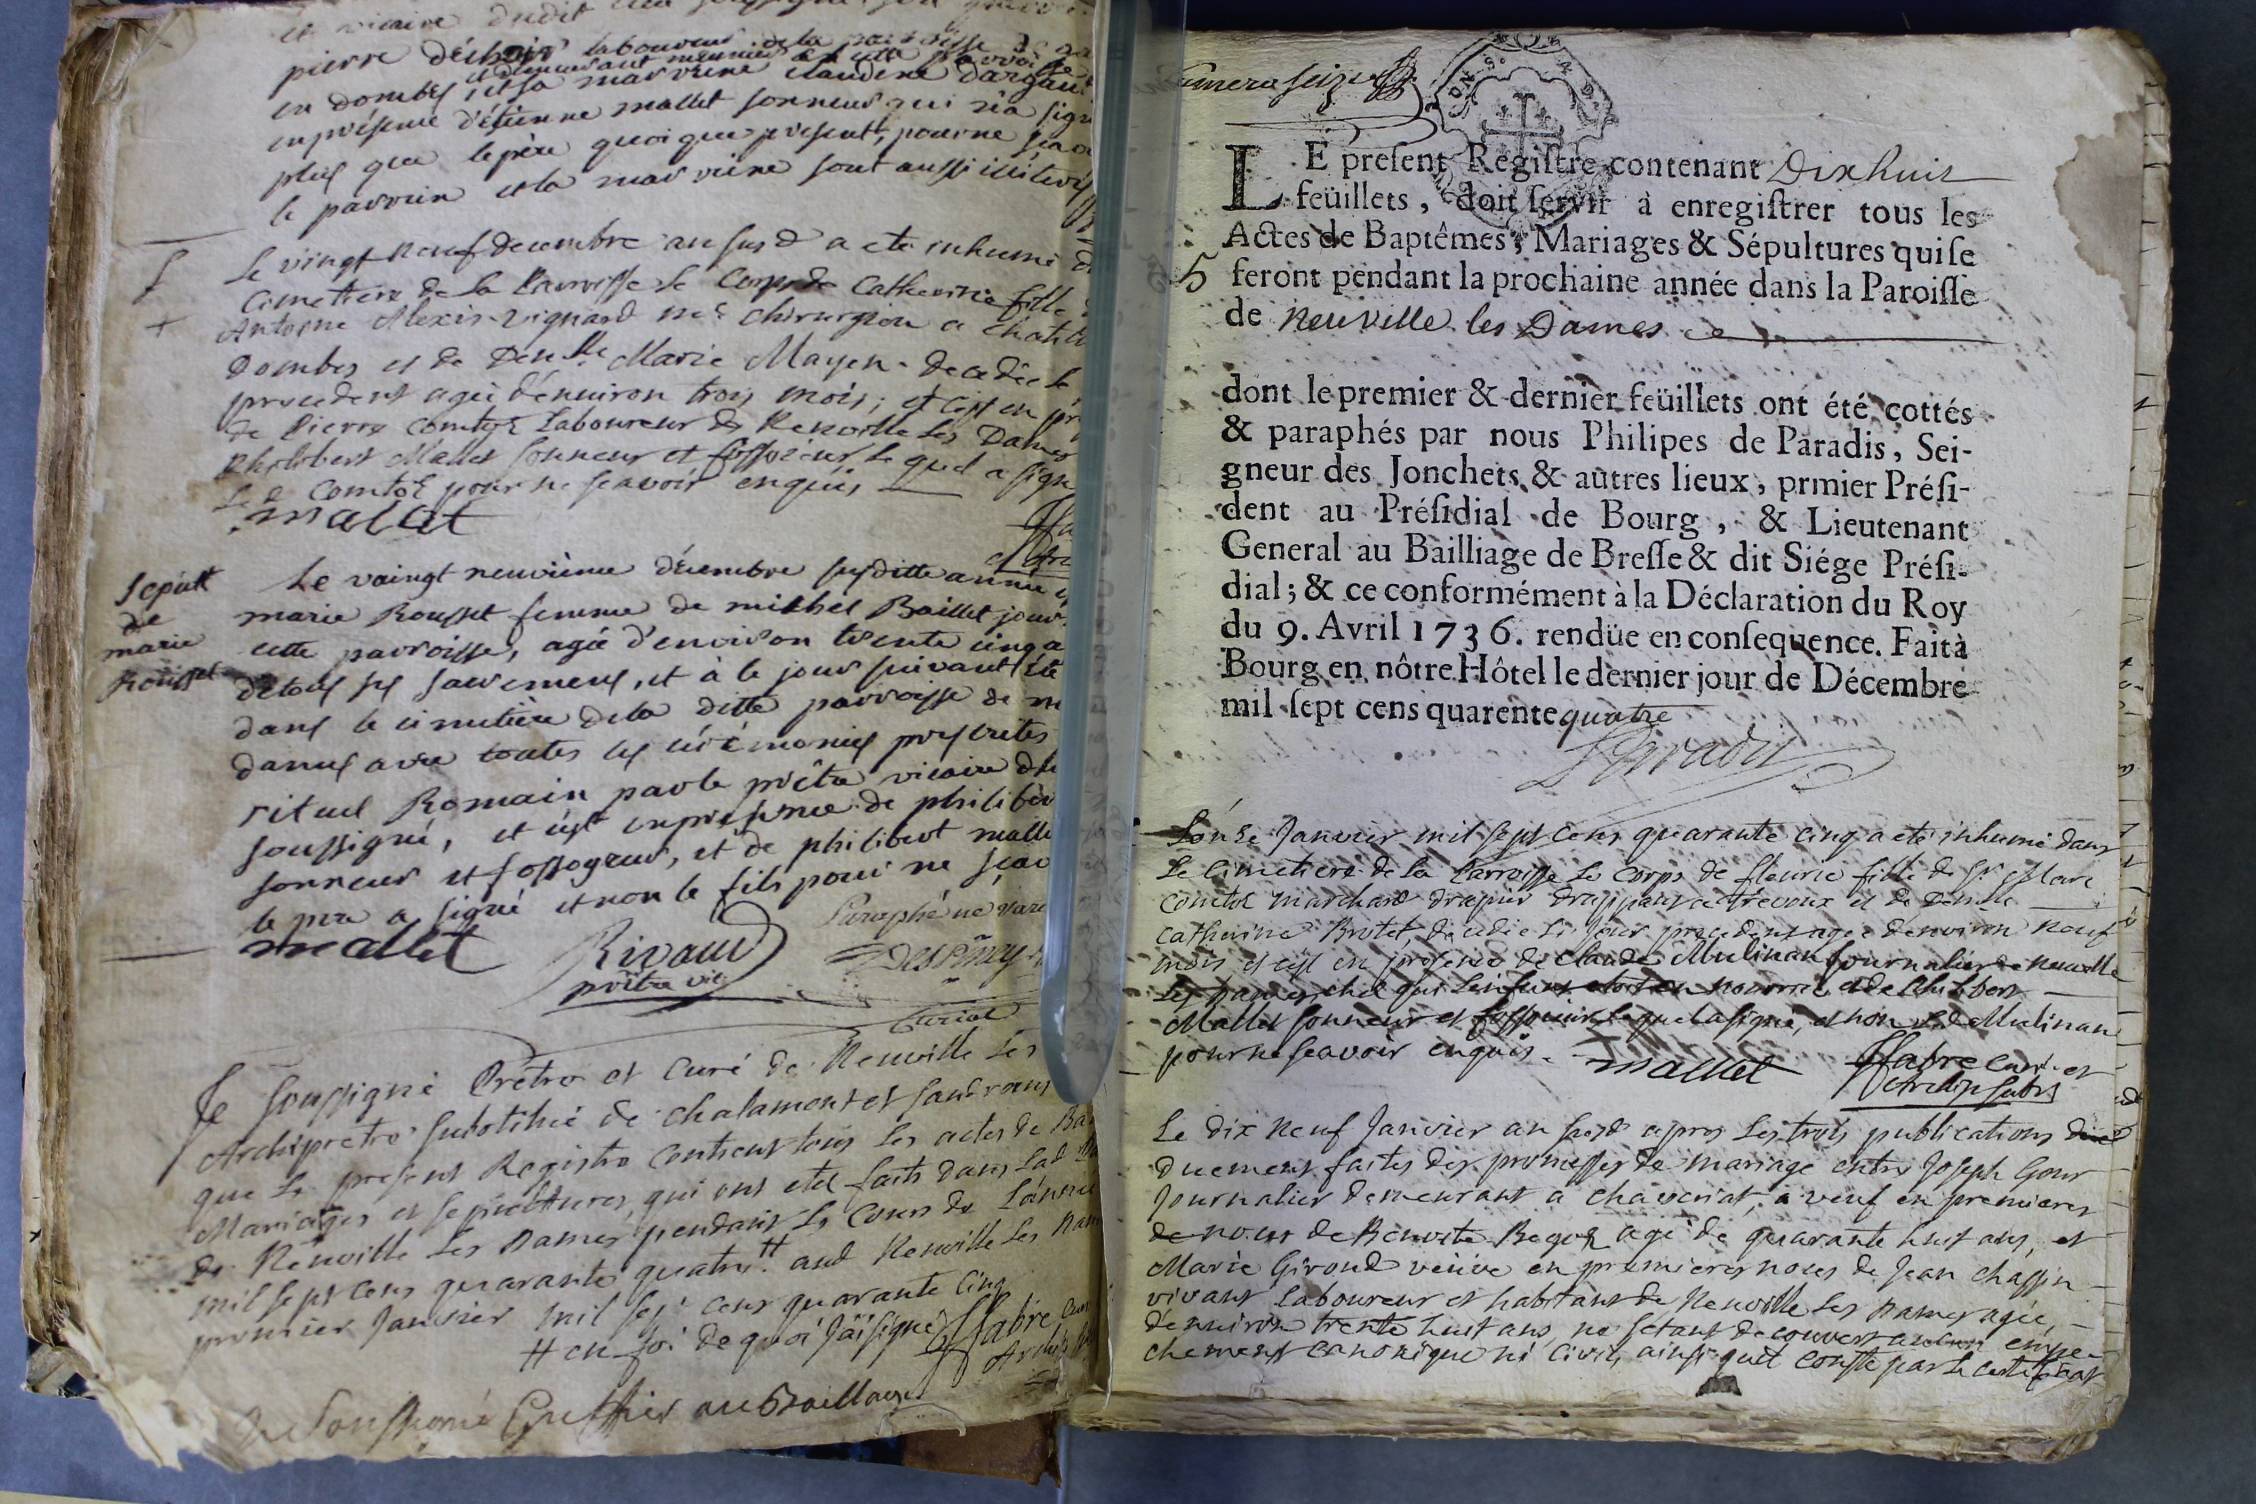 et vicaire dudit
pierre déchoir laboureur de la parroisse de
et demeurant meunier en cette parroisse
en dombes, et sa marreine claudine Dargaud
en présence d'étienne mallet sonneur qui n'a signé
plus que le père quoique present, pour ne sçavoir
le parrein et la marreine sont aussi illiterés
Le vingt neuf decembre an susd. a eté inhumé d
Cimetiere de la Parroisse le Corps de Catherine fille d
Antoine Alexis vignard me. chirurgien a chatill
Dombes et de Demlle. Marie Mayen decedée le
precedent agée d'environ trois mois; et c'est en pre
de Pierre Comtet Laboureur de Neuville les Dames
Philibert Mallet sonneur et fossoieur lequel a signé
Le d. Comtet pour ne scavoir enquis
mallet
sepult
de
marie
Rousset
Le vaingt neuvieme décembre susditte année
marie Rousset femme de michel Baillet jour
cette parroisse, agée d'environ trente cinq a
de tous ses sacremens, et à le jour suivant été
dans le cimetière de la ditte parroisse de ne
dames avec toutes les cérémonies prescrites
rituel Romain par le prêtre vicaire du
soussigné, et c'est en presence de philibert
sonneur et fossoyeur, et de philibert malle
le pere a signé et non le fils pour ne sçav
mallet
Rivaud
prêtre vic
Paraphé ne vare
Despiney
Curial
Je soussigné Prêtre et Curé de Neuville Les
Archiprêtre substitué de Chalamont et Sandrans
que le present Registre contient tous les actes de Ba
Mariages et sepultures, qui ont eté faits dans lad.
de Neuville Les Dames pendant le cours de L'année
mil sept cens quarante quatre # aud. Neuville les Dam
premier Janvier mil sept cens quarante cinq
# en foi de quoi J'ai signé ffabre curé
Archip
Je soussigné Greffier au Bailliage
Numero seize
LE present Registre contenant Dix huit
feüillets, doit servir à enregistrer tous les
Actes de Baptêmes, Mariages & Sépultures qui se
feront pendant la prochaine année dans la Paroisse
de Neuville les Dames
dont le premier & dernier feüillets ont été cottés
& paraphés par nous Philipes de Paradis, Sei-
gneur des Jonchets & autres lieux, prmier Prési-
dent au Présidial de Bourg, & Lieutenant
General au Bailliage de Bresse & dit Siége Prési-
dial; & ce conformément à la Déclaration du Roy
du 9. Avril 1736. rendüe en consequence. Fait à
Bourg en nôtre Hôtel le dernier jour de Décembre
mil sept cens quarente quatre
Paradis
L'onze Janvier mil sept cens quarante cinq a eté inhumé dans
Le Cimetiere de la Parroisse Le Corps de fleurie fille de Sr. Marc
Comtet marchand drapier drappant a trevoux et de Demlle
catherine Brotet, decedée Le jour precedent agée d'environ neuf
mois et c'est en presence de Claude Mulinan journalier de neuville
Les Dames, chez qui L'enfant etoit en nourrice et de Philibert
Mallet sonneur et fossoieur lequel a signé, et non Le d. Mulinan
pour ne scavoir enquis.
mallet ffabre curé et
Archip. subst.
Le dix neuf Janvier an susd. apres Les trois publications
duement faites des promesses de mariage entre Joseph Gour
Journalier demeurant a chaveriat, veuf en premieres
de noces de Benoite Begoz agé de quarante huit ans, et
Marie Giroud veuve en premieres noces de Jean Chaffin
vivant Laboureur et habitant de Neuville Les Dames agée,
d'environ trente huit ans, ne s'etant decouvert aucun empe-
chement canonique ni civil, ainsi qu'il conste par Le certificat